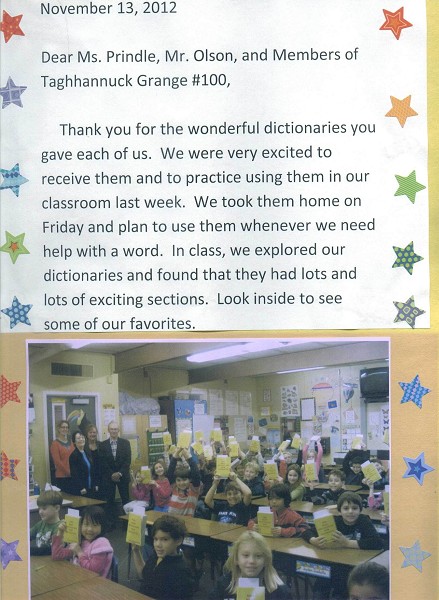 November 13, 2012
Dear Ms. Prindle, Mr. Olson, and Members of
Taghhannuck Grange #100,
Thank you for the wonderful dictionaries you
gave each of us.  We were very excited to
receive them and to practice using them in our
classroom last week.  We took them home on
Friday and plan to use them whenever we need
help with a word.  In class, we explored our
dictionaries and found that they had lots and
lots of exciting sections.  Look inside to see
some of our favorites.